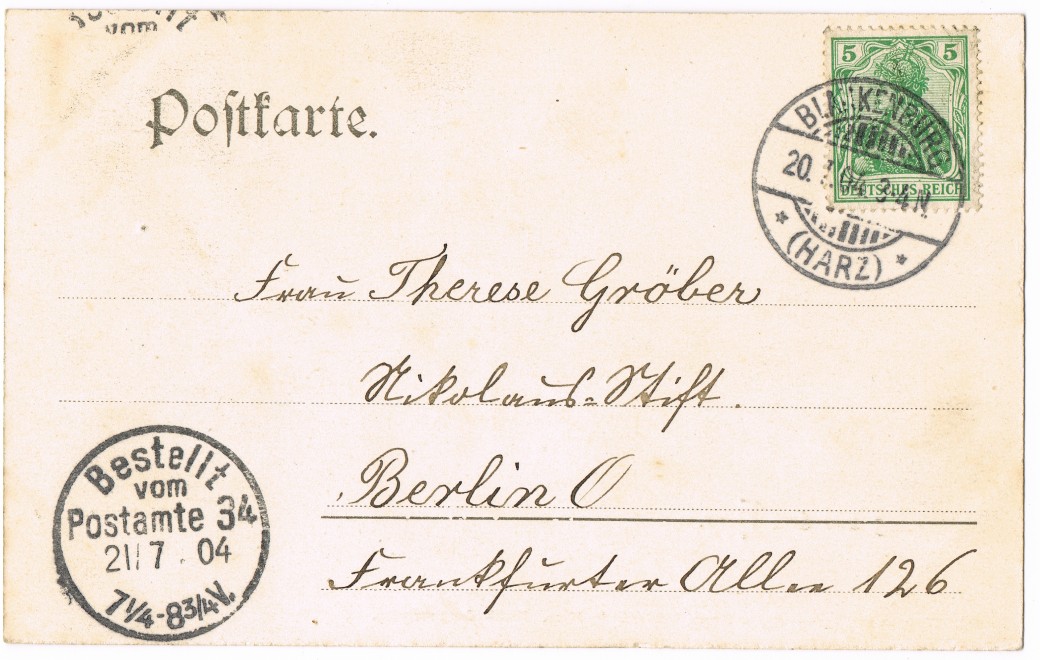 vom
Postkarte.
5 5
DEUTSCHES REICH
BLANKENBURG
20. 7.04. 3-4N.
* (HARZ) *
Frau Therese Gröber
Nikolaus-Stift.
Berlin O
Frankfurter Allee 126
Bestellt
vom
Postamte 34
21/7.04
7¼-8¾V.